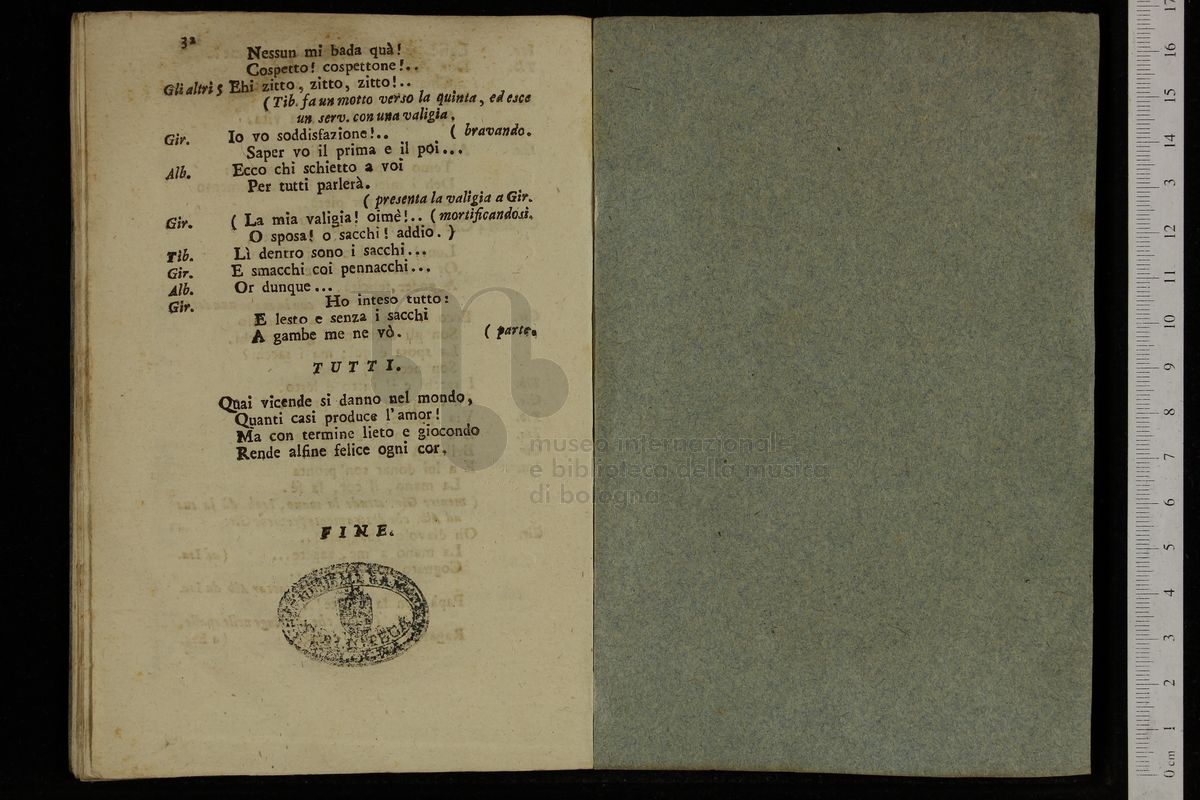 32
Nessun mi bada quà!
Cospetto! cospettone!..
Gli altri 5 Ehi zitto, zitto, zitto!..
( Tib. fa un motto verso la quinta, ed esce
un serv. con una valigia.
Gir. Io vo soddisfazione!.. ( bravando.
Saper vo il prima e il poi...
Alb. Ecco chi schietto a voi
Per tutti parlerà.
( presenta la valigia a Gir.
Gir. ( La mia valigia! oimè!.. ( mortificandosi.
O sposa! o sacchi! addio. )
Tib. Lì dentro sono i sacchi...
Gir. E smacchi coi pennacchi...
Alb. Or dunque...
Gir. Ho inteso tutto:
E lesto e senza i sacchi
A gambe me ne vò. ( parte.
TUTTI.
Quai vicende si danno nel mondo,
Quanti casi produce l'amor!
Ma con termine lieto e giocondo
Rende alfine felice ogni cor.
FINE.
museo internazionale
e biblioteca della musica
di bologna
0 cm 1 2 3 4 5 6 7 8 9 10 11 12 13 14 15 16 17